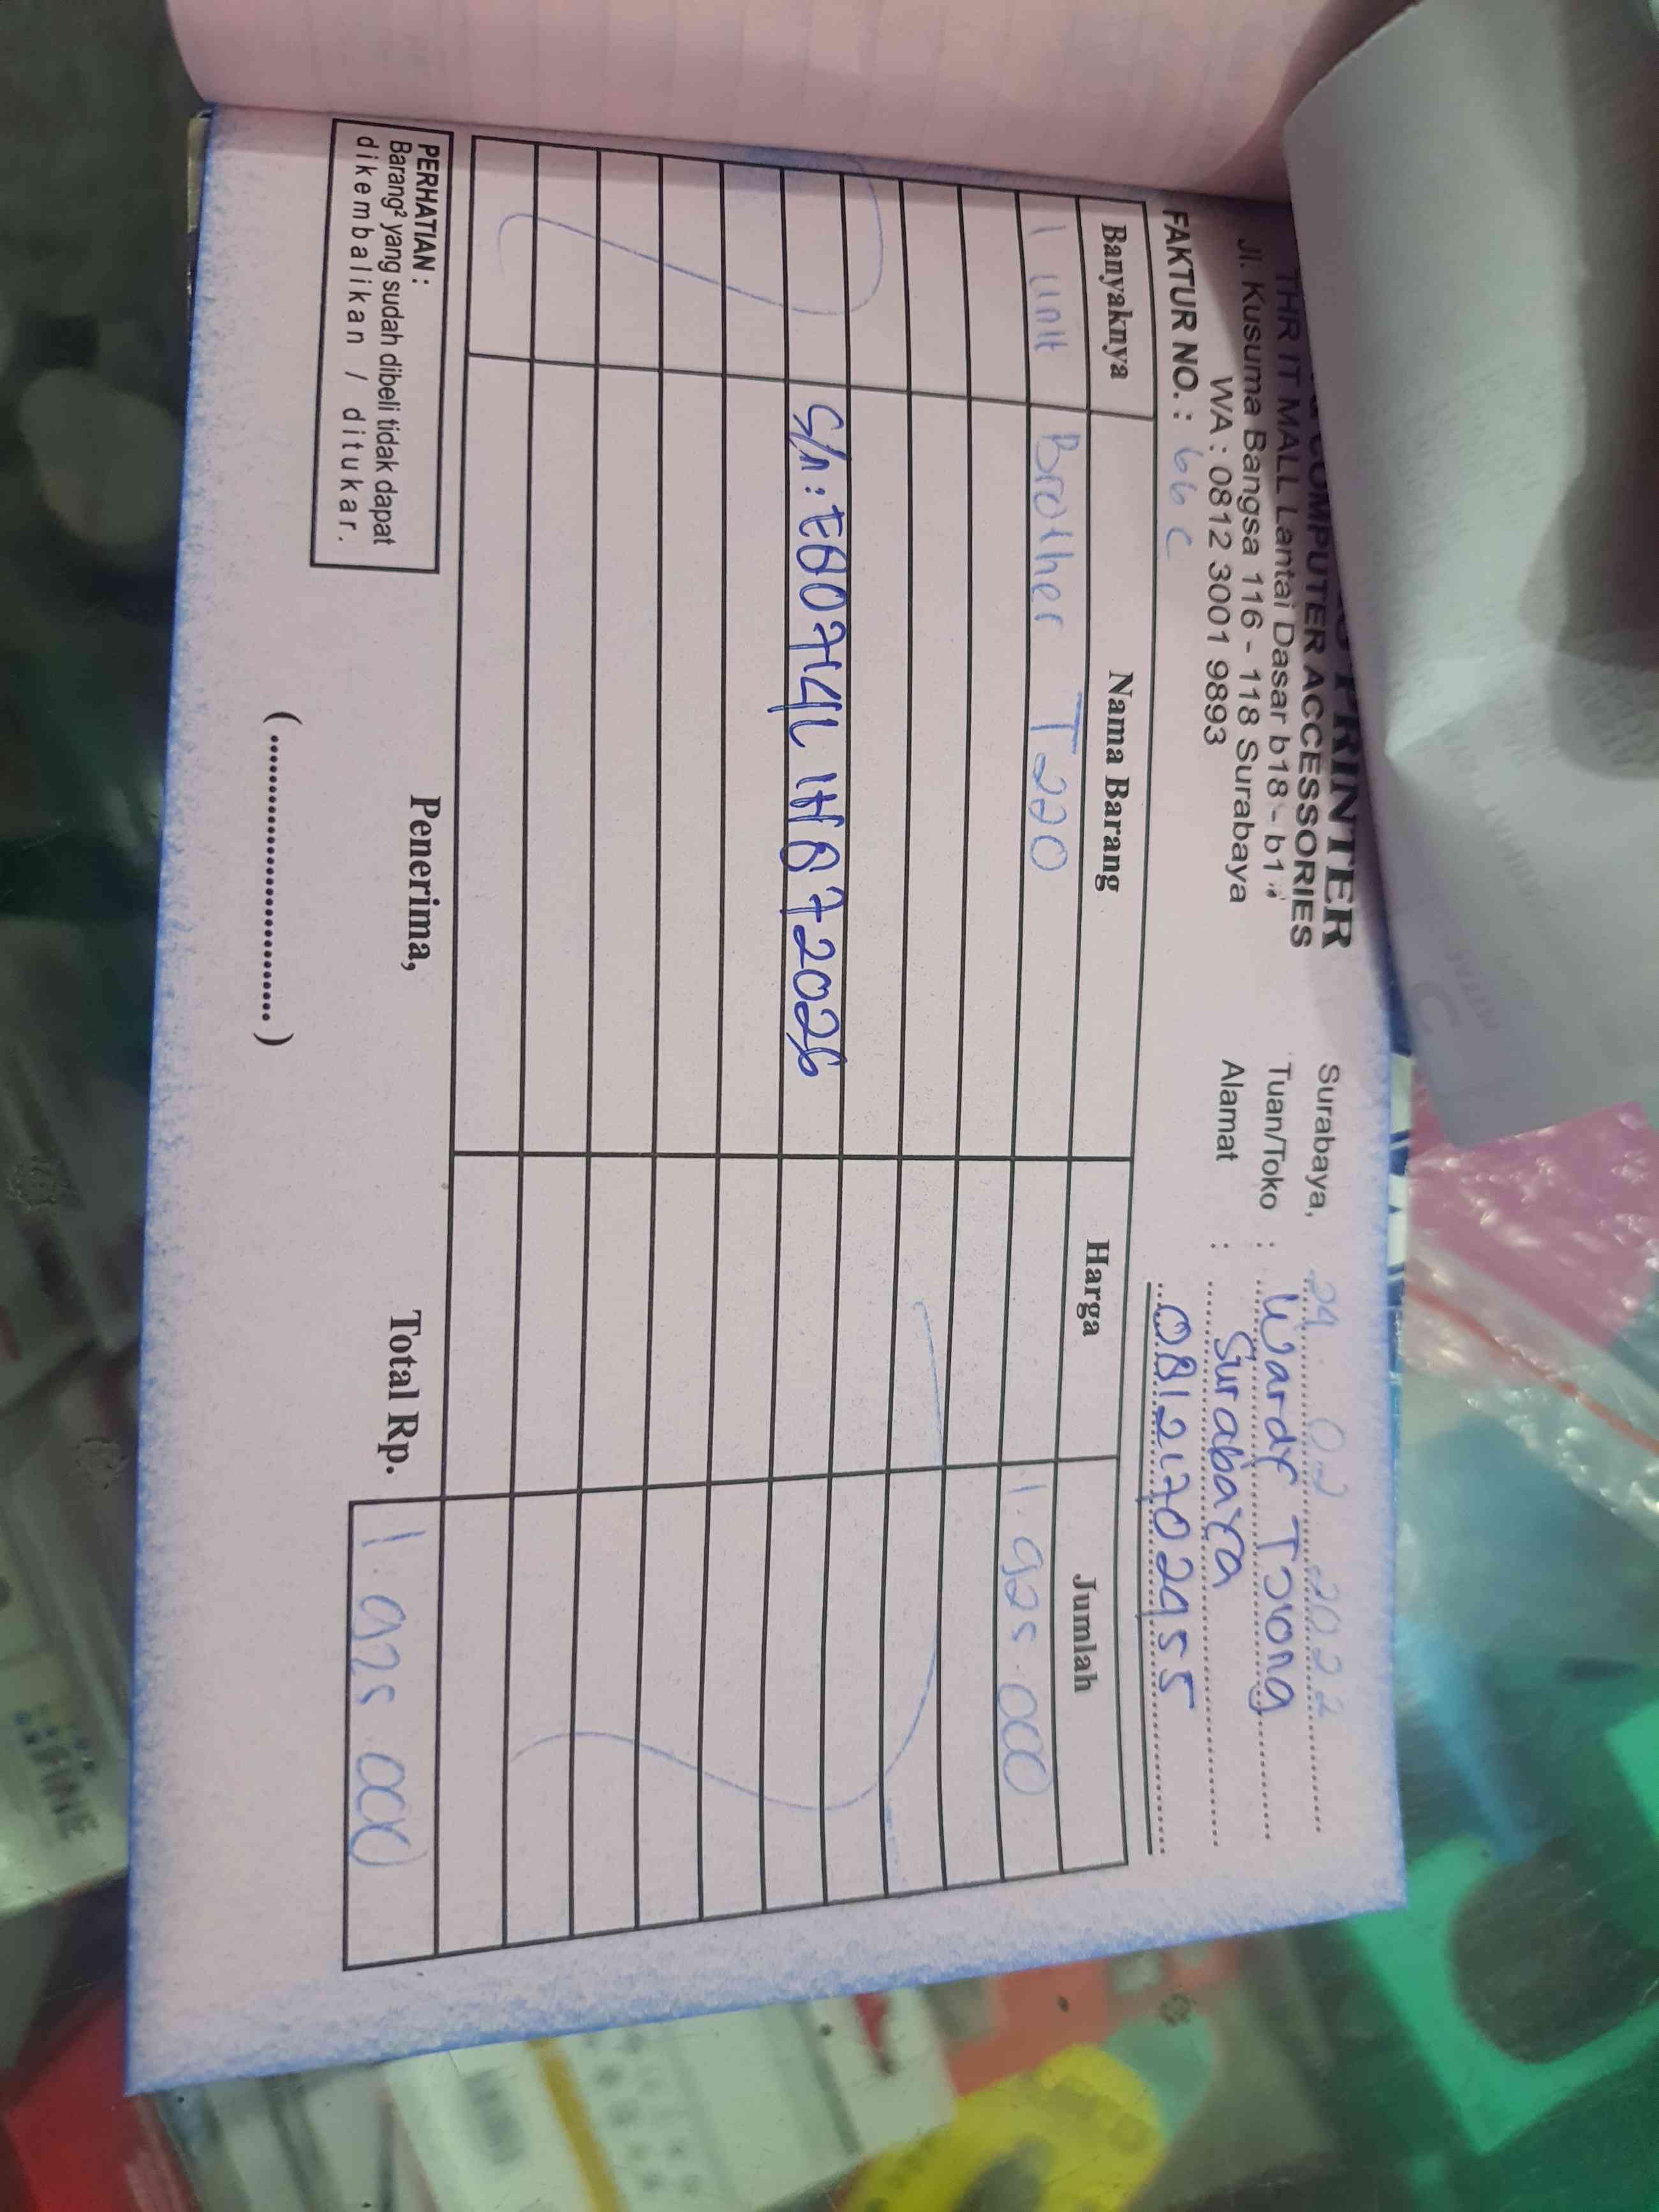 PRINTER
COMPUTER ACCESSORIES
THR IT MALL Lantai Dasar b18 - b1
Jl. Kusuma Bangsa 116 - 118 Surabaya
WA : 0812 3001 9893
FAKTUR NO. : 66 C
Surabaya, 24 02 2022
Tuan/Toko : Wardy Tjiong
Alamat : Surabaya
081217024955
Banyaknya Nama Barang Harga Jumlah
1 unit Brother T220 1.925.000
PERHATIAN :
Barang² yang sudah dibeli tidak dapat
dikembalikan / ditukar.
Penerima,
(..............................)
Total Rp. 1.925.000
FINE